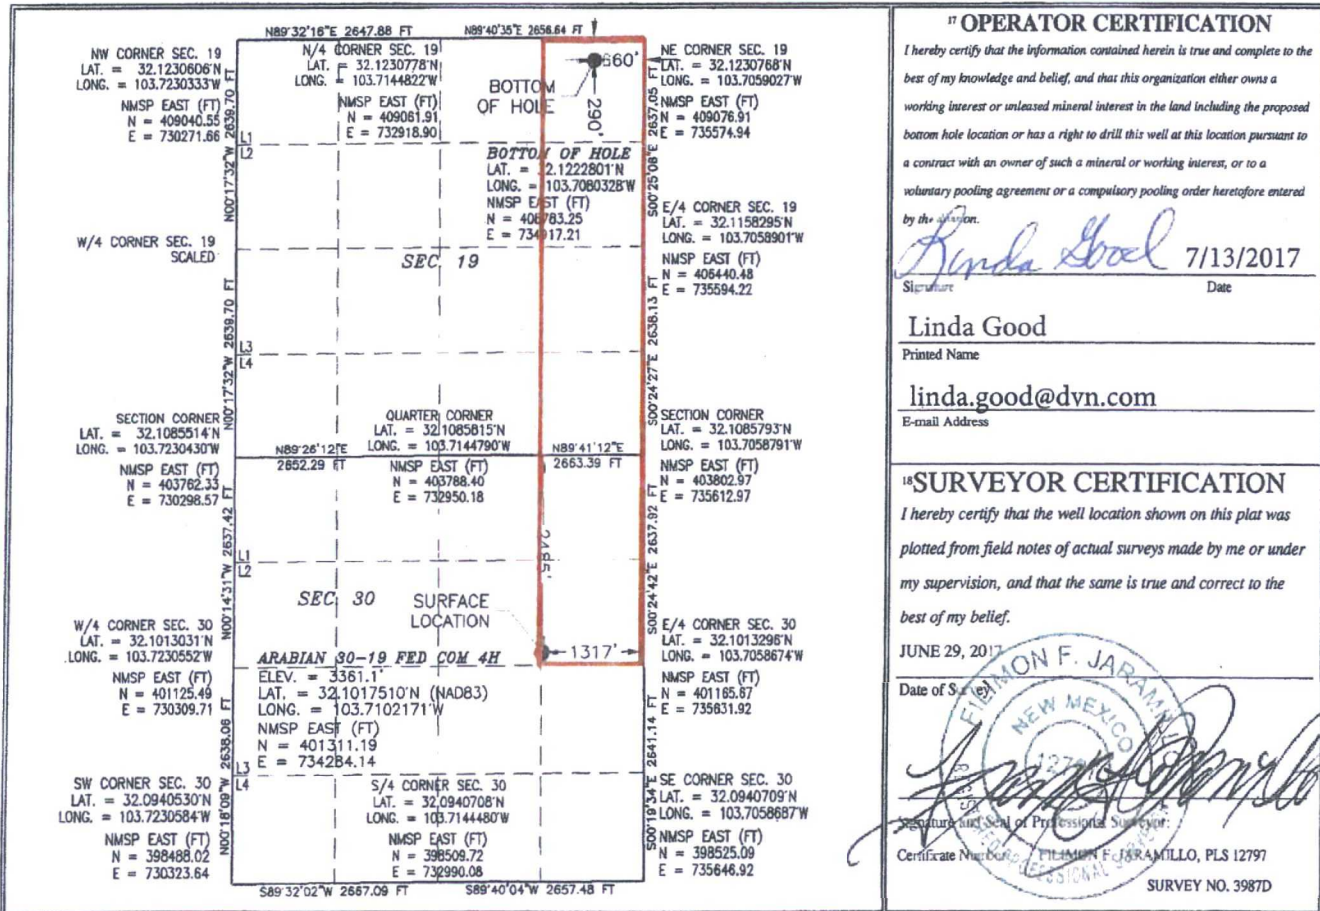 N89°32'16"E 2647.88 FT
N89°40'35"E 2656.64 FT
NW CORNER SEC. 19
LAT. = 32.1230606°N
LONG. = 103.7230333°W
NMSP EAST (FT)
N = 409040.55
E = 730271.66
N/4 CORNER SEC. 19
LAT. = 32.1230778°N
LONG. = 103.7144822°W
NMSP EAST (FT)
N = 409061.91
E = 732918.90
BOTTOM
OF HOLE
660'
290'
NE CORNER SEC. 19
LAT. = 32.1230768°N
LONG. = 103.7059027°W
NMSP EAST (FT)
N = 409076.91
E = 735574.94
N00°17'32"W 2639.70 FT
L1
L2
BOTTOM OF HOLE
LAT. = 32.1222801°N
LONG. = 103.7080328°W
NMSP EAST (FT)
N = 408783.25
E = 734917.21
S00°25'08"E 2637.05 FT
E/4 CORNER SEC. 19
LAT. = 32.1158295°N
LONG. = 103.7058901°W
NMSP EAST (FT)
N = 406440.48
E = 735594.22
W/4 CORNER SEC. 19
SCALED
SEC. 19
N00°17'32"W 2639.70 FT
L3
L4
S00°24'27"E 2638.13 FT
SECTION CORNER
LAT. = 32.1085514°N
LONG. = 103.7230430°W
NMSP EAST (FT)
N = 403762.33
E = 730298.57
QUARTER CORNER
LAT. = 32.1085815°N
LONG. = 103.7144790°W
NMSP EAST (FT)
N = 403788.40
E = 732950.18
N89°26'12"E
2652.29 FT
N89°41'12"E
2663.39 FT
SECTION CORNER
LAT. = 32.1085793°N
LONG. = 103.7058791°W
NMSP EAST (FT)
N = 403802.97
E = 735612.97
N00°14'31"W 2637.42 FT
L1
L2
2485'
S00°24'42"E 2637.92 FT
SEC. 30
SURFACE
LOCATION
1317'
W/4 CORNER SEC. 30
LAT. = 32.1013031°N
LONG. = 103.7230552°W
NMSP EAST (FT)
N = 401125.49
E = 730309.71
E/4 CORNER SEC. 30
LAT. = 32.1013296°N
LONG. = 103.7058674°W
NMSP EAST (FT)
N = 401165.67
E = 735631.92
ARABIAN 30-19 FED COM 4H
ELEV. = 3361.1'
LAT. = 32.1017510°N (NAD83)
LONG. = 103.7102171°W
NMSP EAST (FT)
N = 401311.19
E = 734284.14
N00°18'09"W 2638.06 FT
L3
L4
S00°19'34"E 2641.14 FT
SW CORNER SEC. 30
LAT. = 32.0940530°N
LONG. = 103.7230584°W
NMSP EAST (FT)
N = 398488.02
E = 730323.64
S/4 CORNER SEC. 30
LAT. = 32.0940708°N
LONG. = 103.7144480°W
NMSP EAST (FT)
N = 398509.72
E = 732990.08
SE CORNER SEC. 30
LAT. = 32.0940709°N
LONG. = 103.7058687°W
NMSP EAST (FT)
N = 398525.09
E = 735646.92
S89°32'02"W 2667.09 FT
S89°40'04"W 2657.48 FT
17 OPERATOR CERTIFICATION
I hereby certify that the information contained herein is true and complete to the
best of my knowledge and belief, and that this organization either owns a
working interest or unleased mineral interest in the land including the proposed
bottom hole location or has a right to drill this well at this location pursuant to
a contract with an owner of such a mineral or working interest, or to a
voluntary pooling agreement or a compulsory pooling order heretofore entered
by the
Linda Good 7/13/2017
Signature Date
Linda Good
Printed Name
linda.good@dvn.com
E-mail Address
18 SURVEYOR CERTIFICATION
I hereby certify that the well location shown on this plat was
plotted from field notes of actual surveys made by me or under
my supervision, and that the same is true and correct to the
best of my belief.
JUNE 29, 2017
Date of Survey
FILIMON F. JARAMILLO
NEW MEXICO
PROFESSIONAL
Signature and Seal of Professional Surveyor:
Certificate Number FILIMON F. JARAMILLO, PLS 12797
SURVEY NO. 3987D